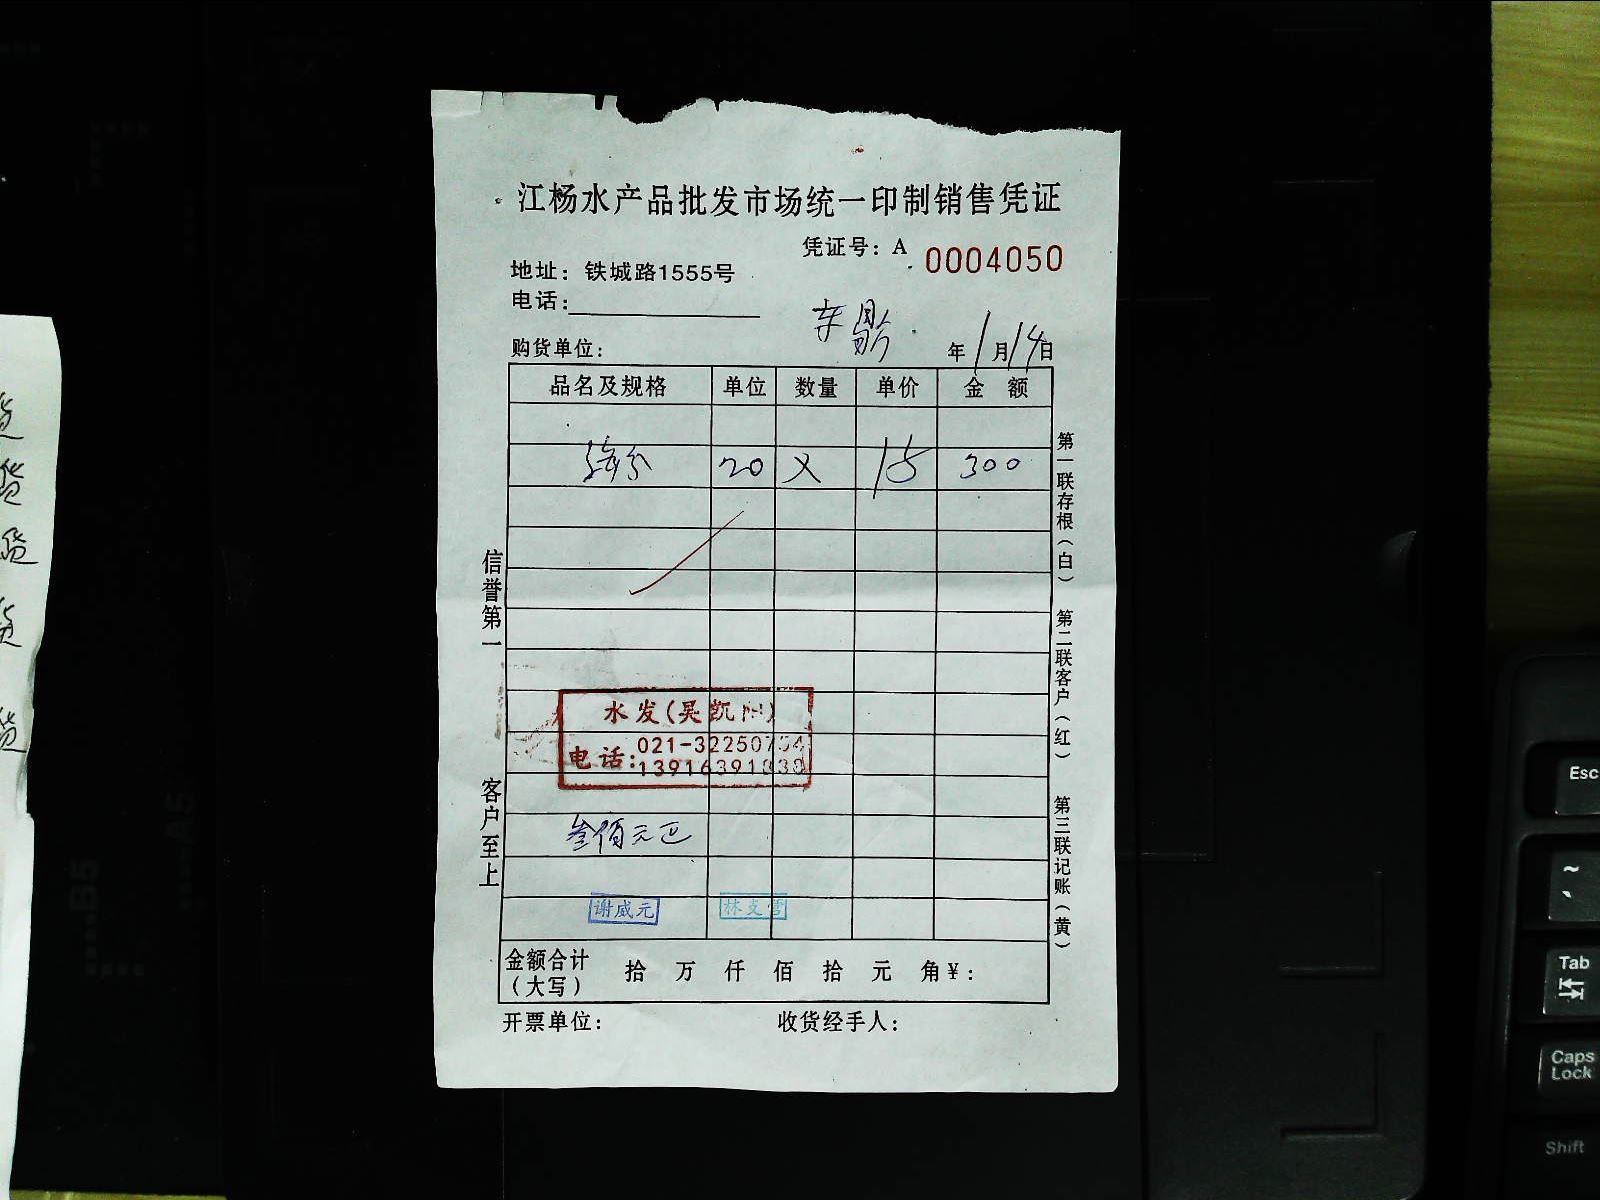 江杨水产品批发市场统一印制销售凭证
凭证号：A 0004050
地址：铁城路1555号
电话：
购货单位：
年1月14日
品名及规格 单位 数量 单价 金额
20 X 15 300
水发(吴凯
电话：021-32250754
叁佰元正
谢威元
金额合计（大写） 拾 万 仟 佰 拾 元 角￥：
开票单位： 收货经手人：
信誉第一
客户至上
第一联存根（白）
第二联客户（红）
第三联记账（黄）
Esc
~
Tab
Caps Lock
Shift
B5
A5